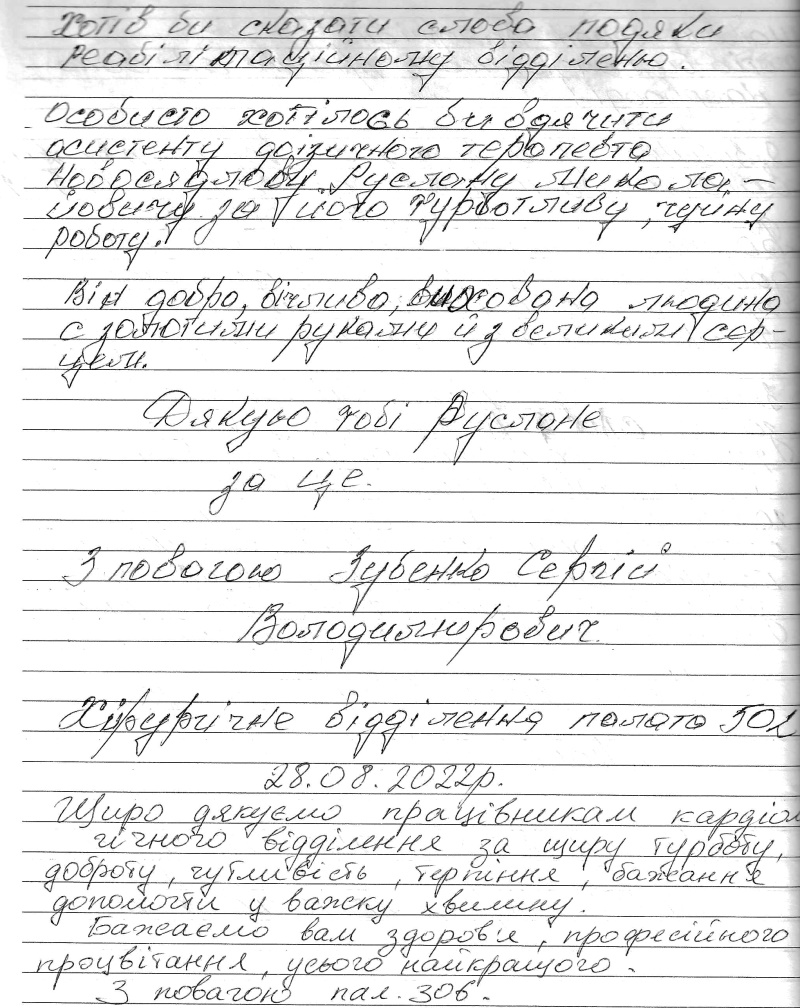 Хотів би сказати слова подяки
реабілітаційному відділеню.
Особисто хотілось би вдячити
асистенту фізичного терапевта
Новосядлову Руслану Микола-
йовичу за його турботливу, чуйну
роботу.
Він добра, вічлива, вихована людина
с золотими руками й з великим сер-
цем.
Дякую тобі Руслане
за це.
З повагою Зубенко Сергій
Володимирович
Хірургічне відділення палата 502
28.08.2022р.
Щиро дякуємо працівникам кардіол
гічного відділення за щиру турботу,
доброту, чутливість, терпіння, бажання
допомогти у важку хвилину.
Бажаємо вам здоров'я, професійного
процвітання, усього найкращого.
З повагою пал. 306.